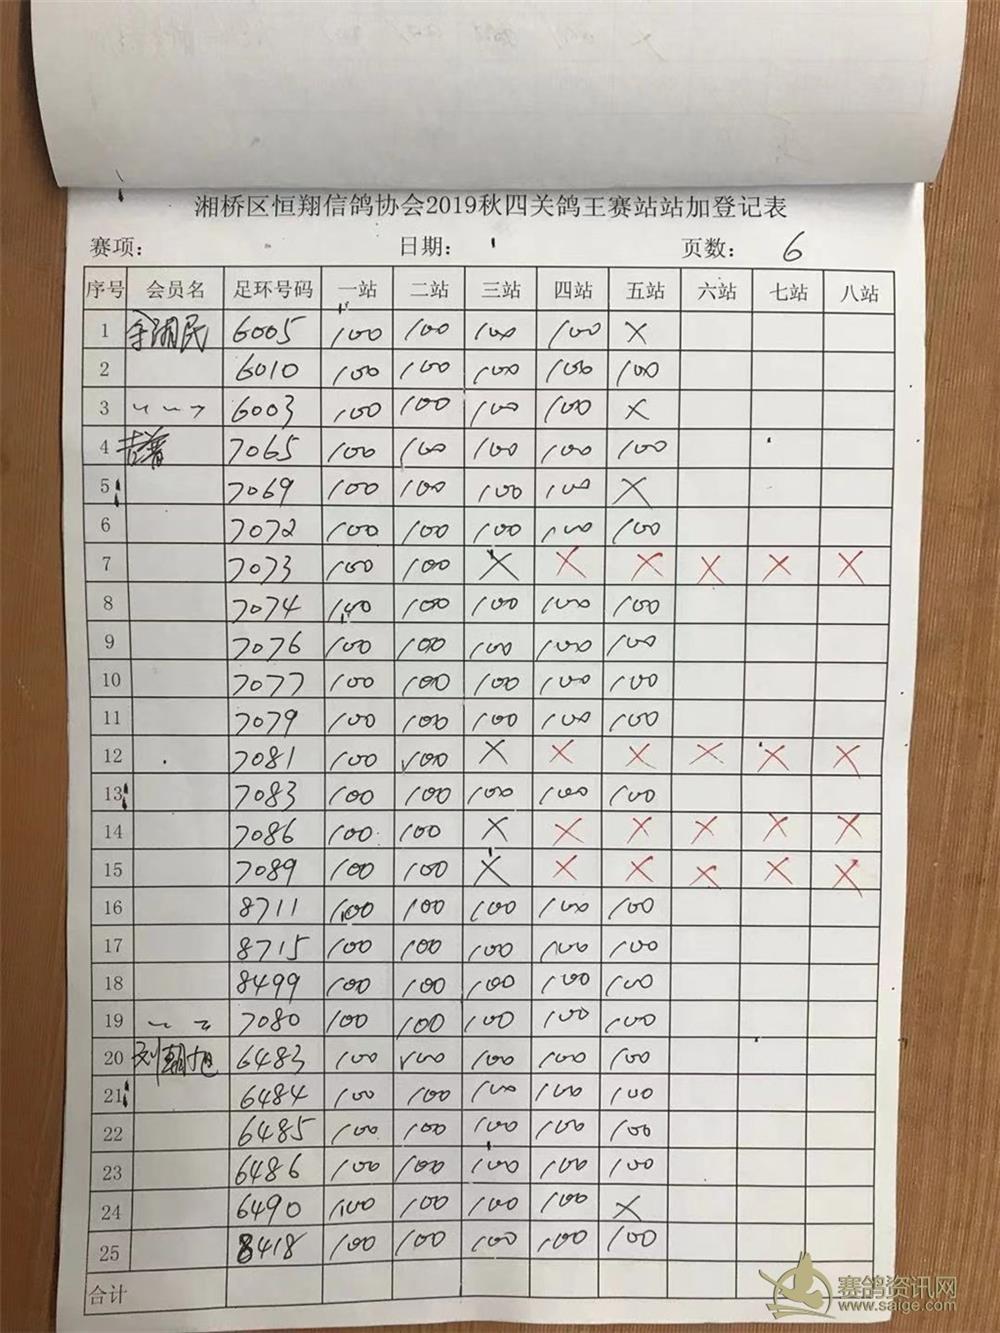 湘桥区恒翔信鸽协会2019秋四关鸽王赛站站加登记表
赛项: 日期: 页数: 6
序号 会员名 足环号码 一站 二站 三站 四站 五站 六站 七站 八站
1 余湘民 6005 100 100 100 100 X
2 6010 100 100 100 100 100
3 6003 100 100 100 100 X
4 7065 100 100 100 100 100
5 7069 100 100 100 100 X
6 7072 100 100 100 100 100
7 7073 100 100 X X X X X X
8 7074 100 100 100 100 100
9 7076 100 100 100 100 100
10 7077 100 100 100 100 100
11 7079 100 100 100 100 100
12 7081 100 100 X X X X X X
13 7083 100 100 100 100 100
14 7086 100 100 X X X X X X
15 7089 100 100 X X X X X X
16 8711 100 100 100 100 100
17 8715 100 100 100 100 100
18 8499 100 100 100 100 100
19 7080 100 100 100 100 100
20 刘朝旭 6483 100 100 100 100 100
21 6484 100 100 100 100 100
22 6485 100 100 100 100 100
23 6486 100 100 100 100 100
24 6490 100 100 100 100 X
25 8418 100 100 100 100 100
合计
赛鸽资讯网
www.saige.com